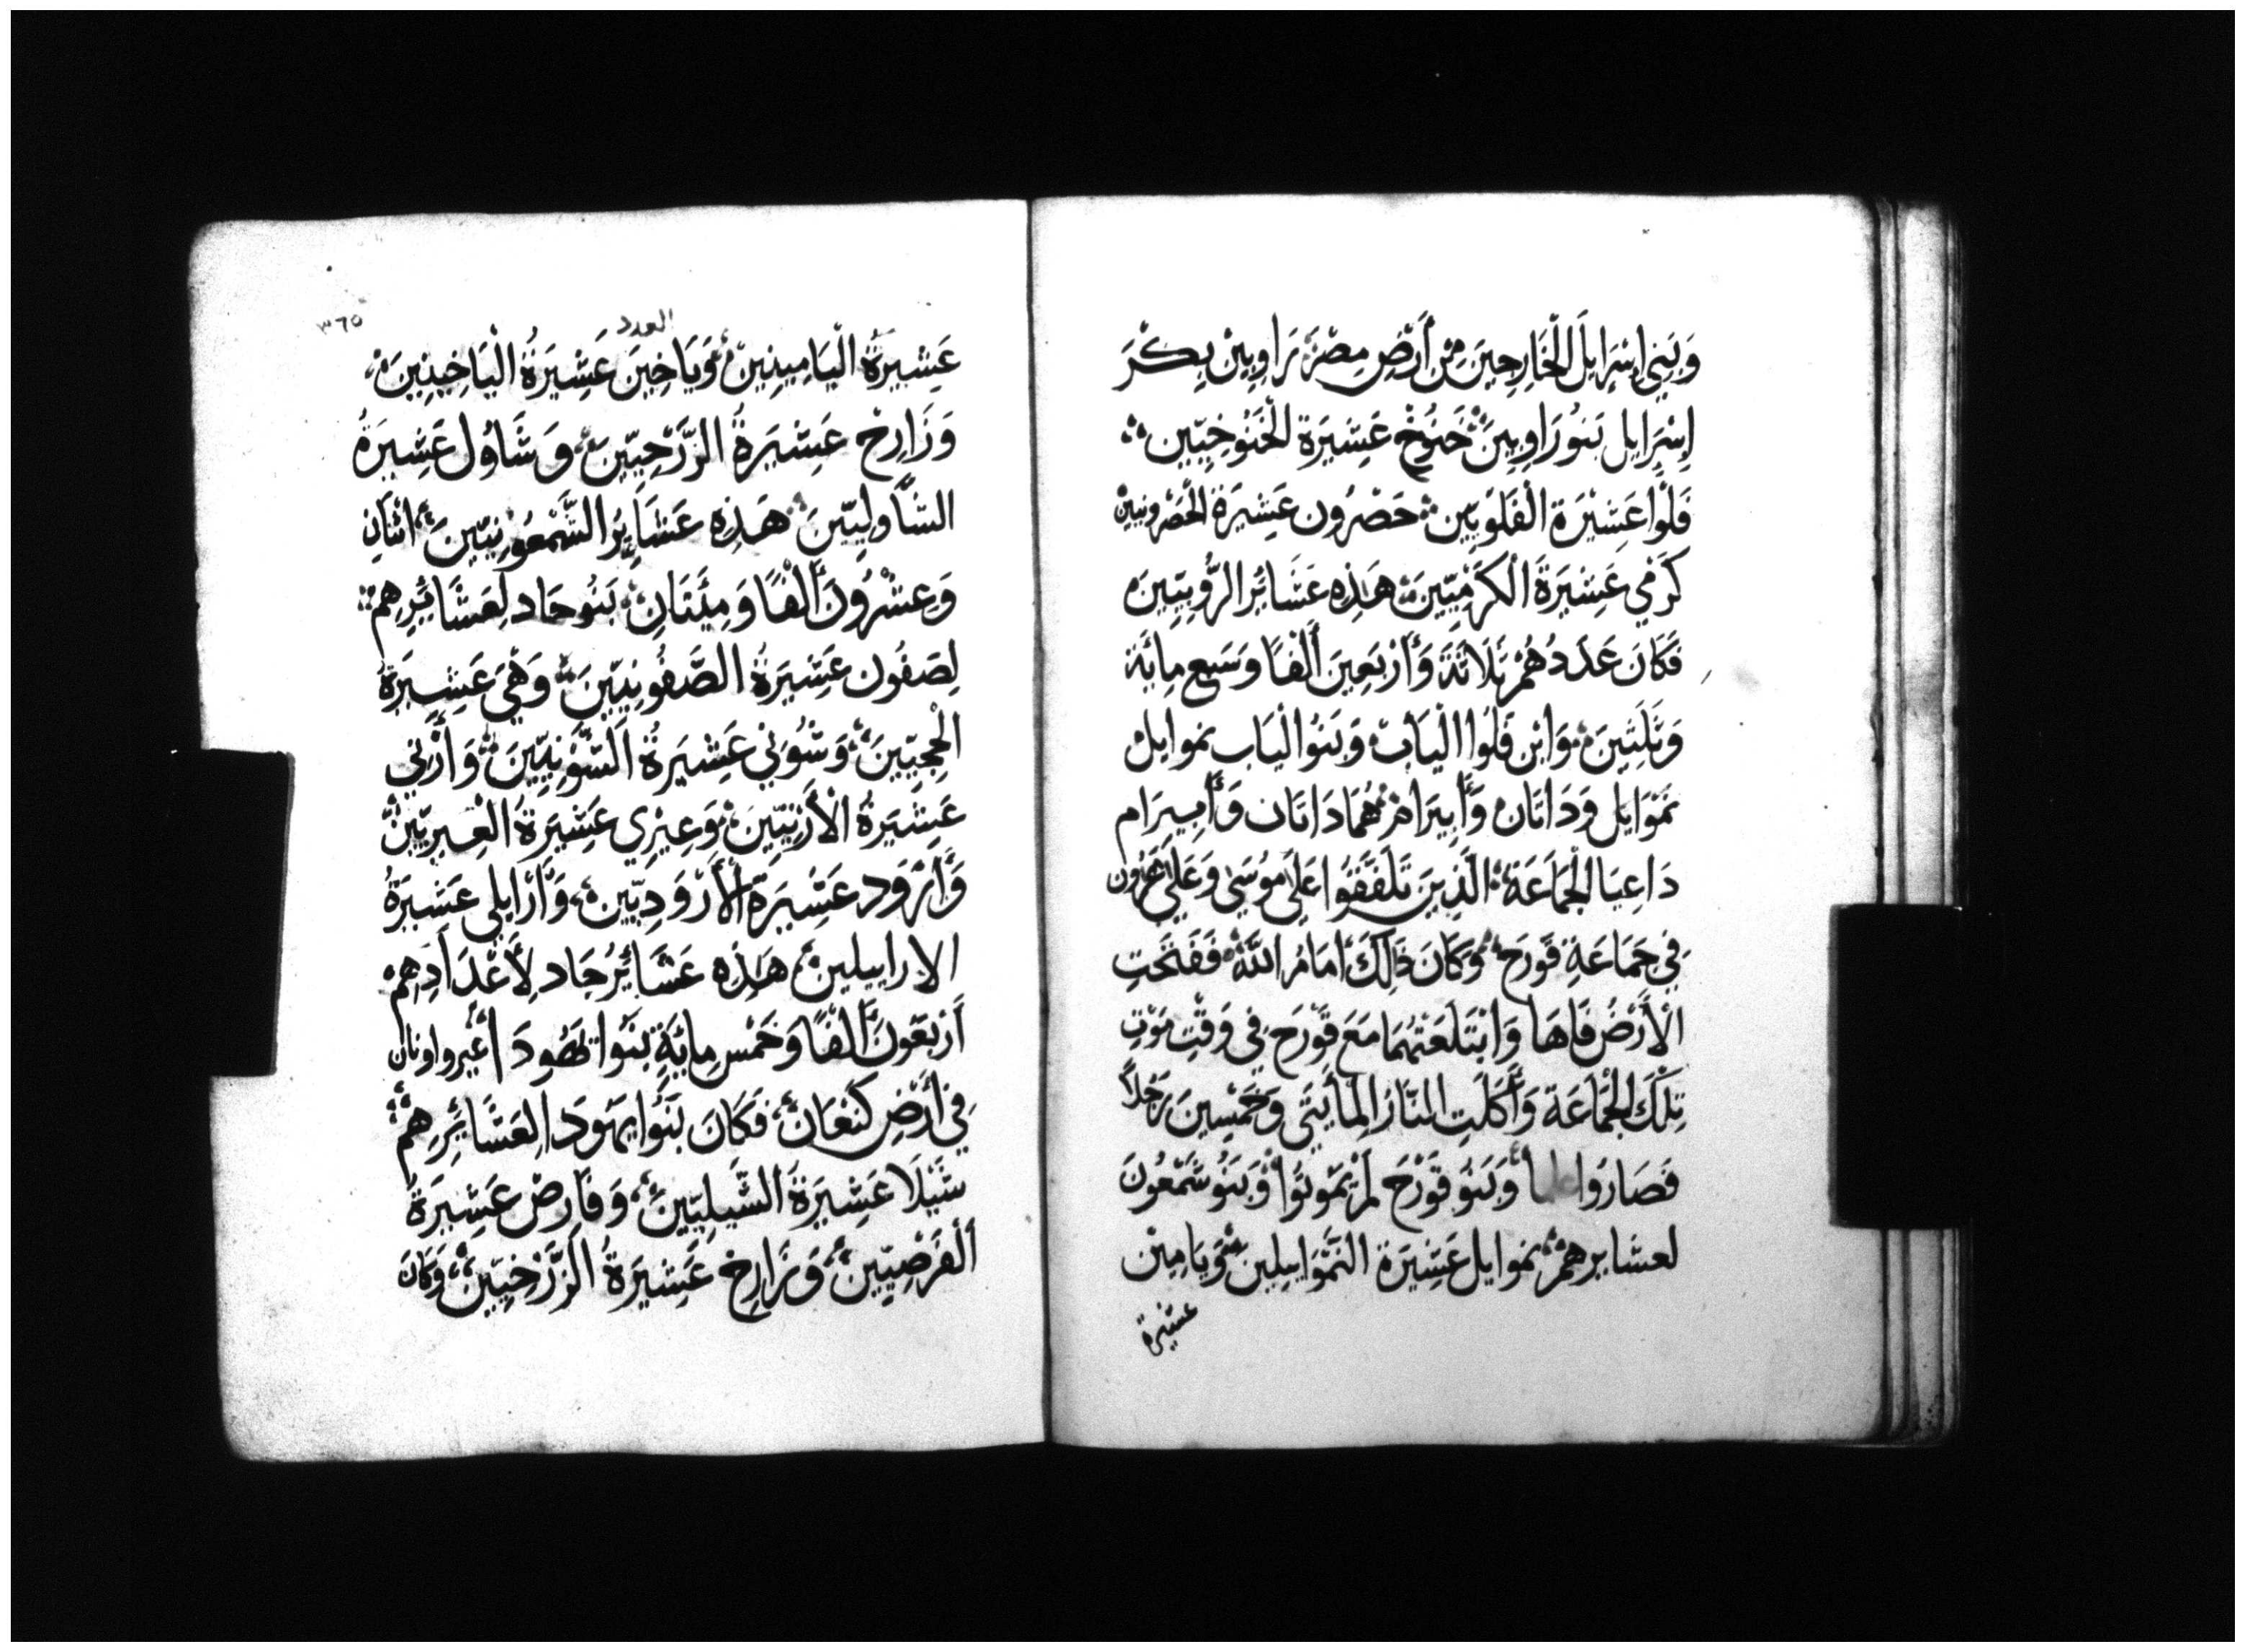 وَبَنِي إِسْرَايِلَ الْخَارِجِينَ مِنْ أَرْضِ مِصْرَ رَاوِبِينْ بِكْرَ
إِسْرَايِل بَنُو رَاوِبِينَ حَنُوخْ عَشِيرَة الْخَنُوخِيّين
فَلّوا عَشِيْرَة الْفَلوِيّين حَصْرُون عَشِيرَة الْحَصْرونيينْ
كَرْمي عَشِيْرَةَ الْكَرْمِيّينَ هَذِهِ عَشَائِرُ الرُّوبِيّينَ
فَكَانَ عَدَدُهُمْ ثَلَاثَةَ وَأَرْبَعِينَ أَلْفًا وَسَبع مِائَة
وَثَلَثينَ وَابْن فَلُوا الْيَابْ وَبَنُوا لْيَاب نموايل
نَمْوَايَل وَدَاثَان وَأَبِيرَامْ هُمَا دَاثَان وَأَبِيرَام
دَاعِيَا الْجَمَاعَة الَّذِينَ تَلَفَّقُوا عَلَى مُوسَى وَعَلَى هَرُون
فِي جَمَاعَةِ قَوْرَحَ وَكَانَ ذَلِكَ أمَامُ اللَّهْ فَفَتَحَتِ
الْأَرْضُ فَاهَا وَابْتَلَعَتْهُمَا مَعَ قَوْرَحَ فِي وَقْتِ مَوْتِ
تِلْكَ الْجَمَاعَة وَأَكَلَتِ النَّارُ الْمِأيَتَي وَخَمْسِينَ رَجُلاً
فَصَارُوا وَبَنُو قَوْرَحَ لَمْ يَمُوتُوا وَبَنُو شَمْعُونَ
لعشايرهمْ نموايل عَشِيْرَة النَّمْوَاييلِين وَيَامِيْن
عشيرة
العدد
٣٦٥
عَشِيرَةُ الْيَامِينِينْ وَيَاخِينَ عَشِيَرَةُ الْيَاخِينِينَ
وَزَارحْ عَشِيرَةُ الزَّرْحِيّينَ وَشَاوُل عَشِيرَةُ
الشَّاولِيّينَ هَذِهِ عَشَائِرُ الشَّمْعُونِيّينَ اثْنَانِ
وَعِشْرُونَ أَلْفًا وَمِئَتَانِ بَنُو جَاد لِعَشَائِرِهِمْ
لِصَفُون عَشِيَرَةُ الصَّفُونِيّينَ وَهْجي عَشِيرَةُ
الْحِجِيّينَ وَشُوني عَشِيَرَةُ الشّونِيِّينَ وَأَزْني
عَشِيَرَةُ الْأَزْنِيّينَ وَعِيْرِي عَشِيَرَةُ الْعِيريّينْ
وَأَرْوَد عَشِيَرَة الأَرْوَدِيّينْ وَأَرْايلى عَشِيَرَةُ
الاراييلين هَذِه عَشَائِرُ جَاد لِأَعْدَادِهِمْ
أَرْبَعُونَ أَلْفًا وَخَمْس مِايَةٍ بَنُوا يَهُودَا عير واونان
فِي أَرْضِ كَنْعَانْ فَكَانَ بَنُوا يَهُودَا لِعَشَائِرِهِمْ
شَيْلَا عَشِيَرَةَ الشَّيلِيّينْ وَفَارِصْ عَشِيَرَةُ
الْفَرْصِيّينْ وَزَارِحْ عَشِيَرَةُ الزَّرْحِيّينْ وَكَانَ